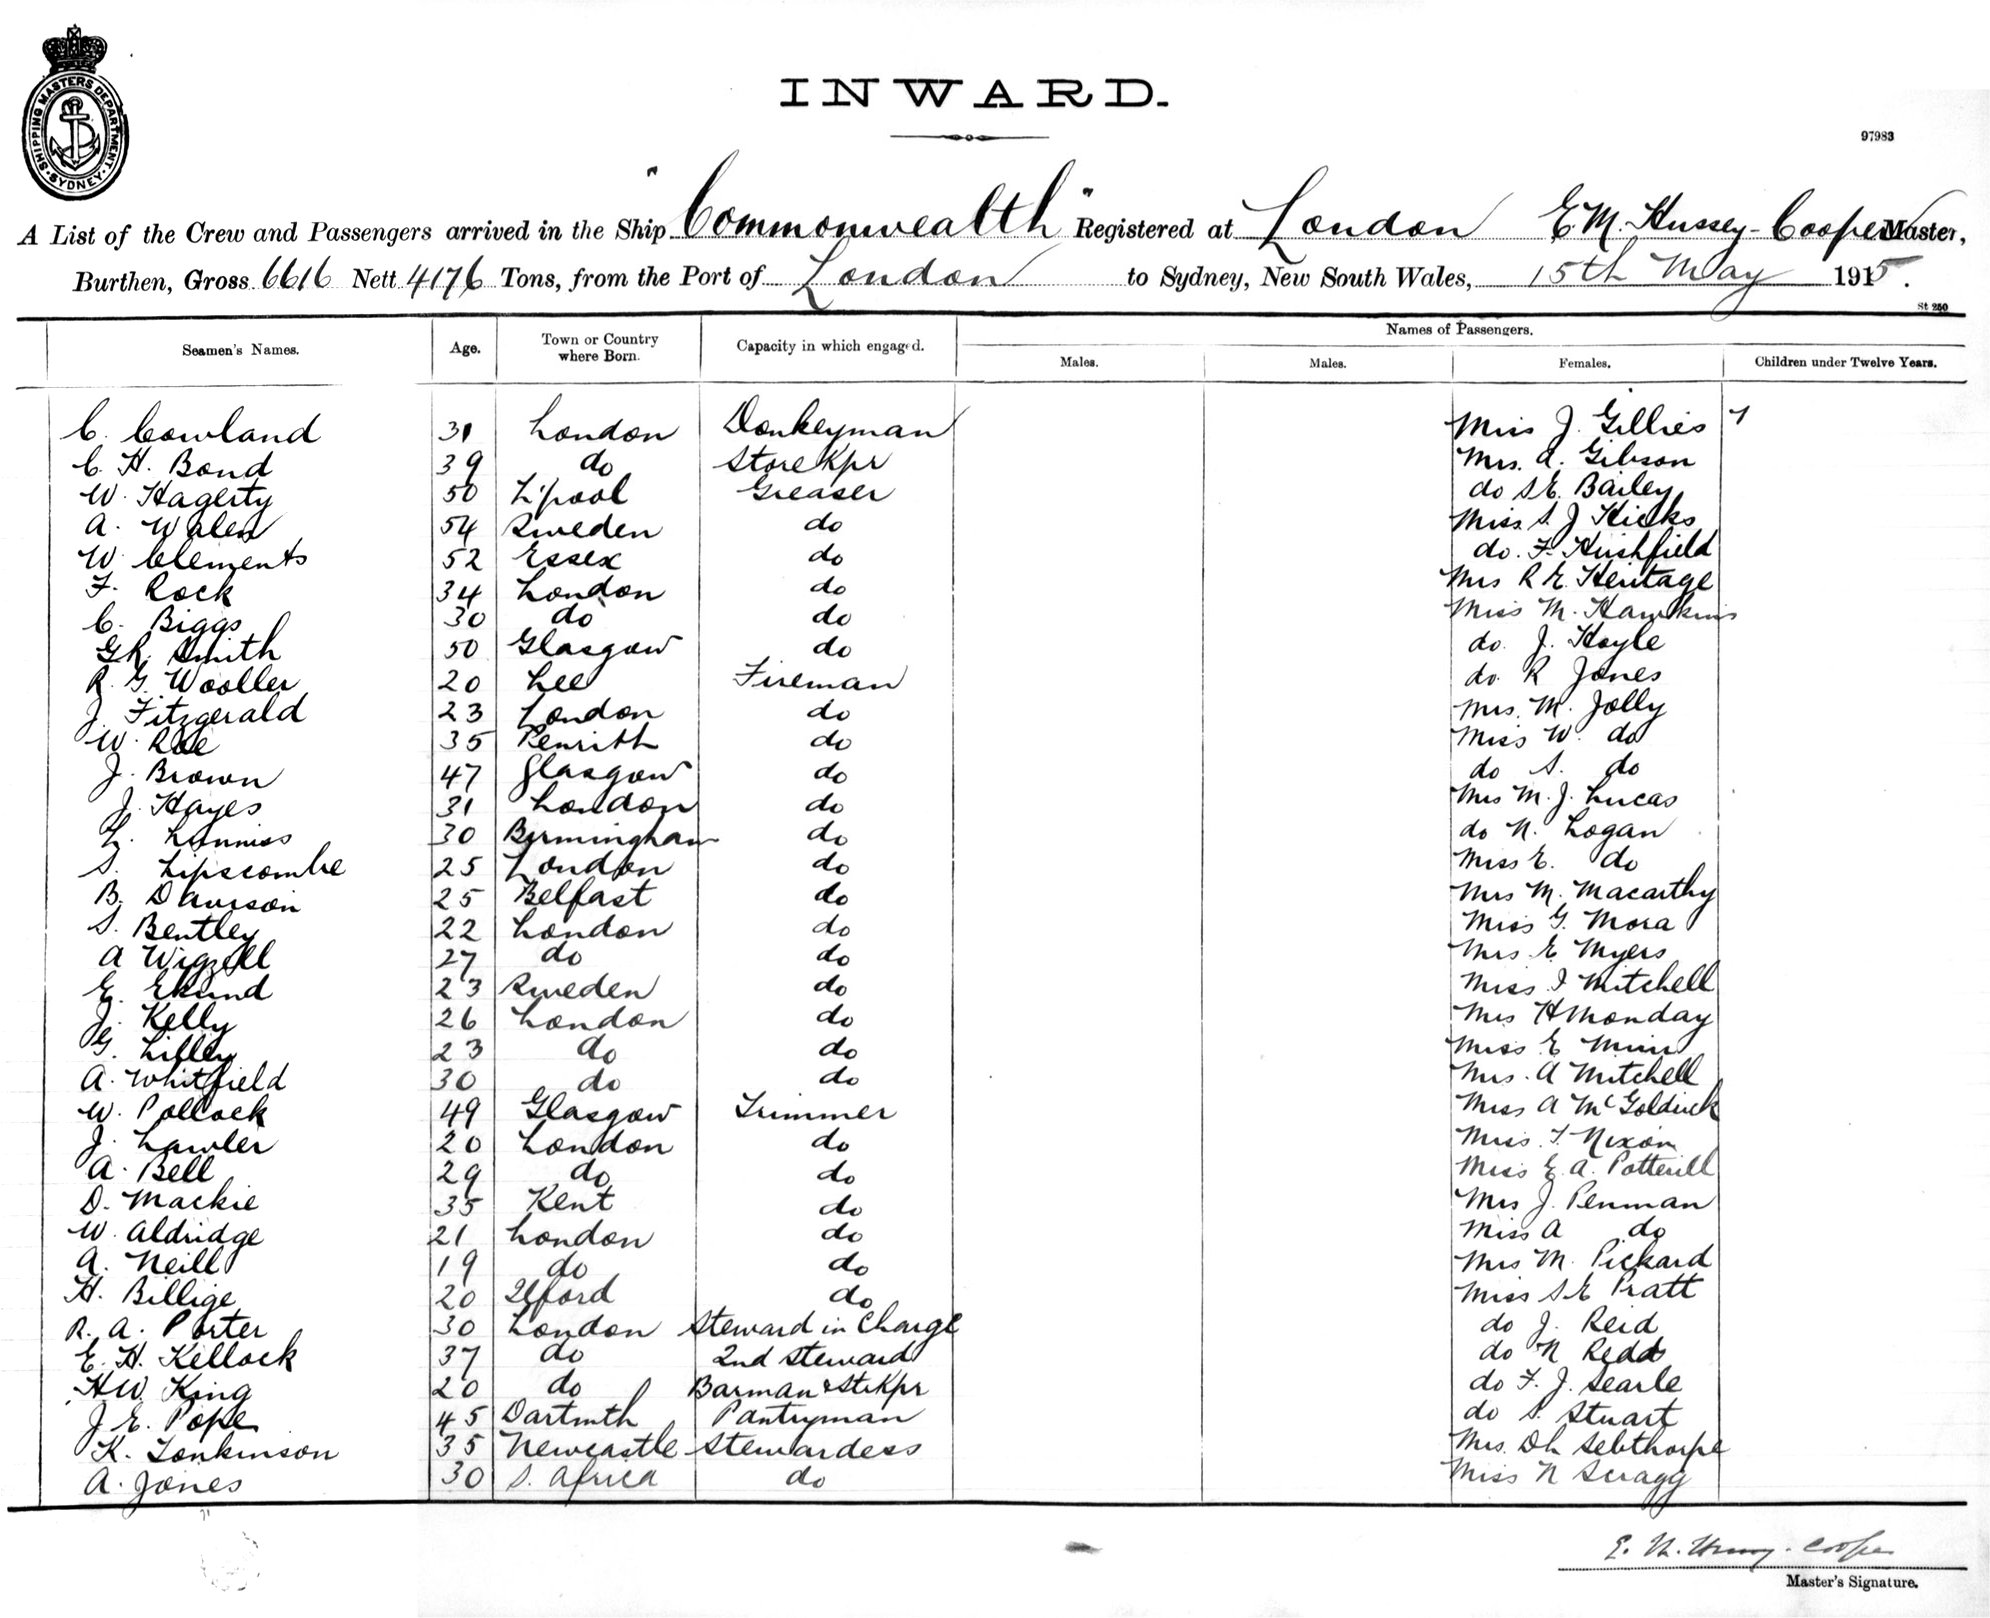 SHIPPING MASTERS DEPARTMENT. SYDNEY.
INWARD.
97983
A List of the Crew and Passengers arrived in the Ship "Commonwealth" Registered at London E. M. Hussey-Cooper Master,
Burthen, Gross 6616 Nett 4176 Tons, from the Port of London to Sydney, New South Wales, 15th May 1915.
St 250
Seamen's Names. Age. Town or Country where Born. Capacity in which engaged. Names of Passengers.
Males. Males. Females. Children under Twelve Years.
C. Cowland 31 London Donkeyman Miss J. Gillies 1
C. H. Bond 39 do StoreKpr Mrs. A. Gibson
W. Hagerty 50 L'pool Greaser do S.E. Bailey
A. Walen 54 Sweden do Miss S. J Hicks
W. Clements 52 Essex do do. F. Hushfield
F. Rock 34 London do Mrs R E. Heritage
C. Biggs 30 do do Miss M. Hawkins
G.R. Smith 50 Glasgow do do. J. Hoyle
R. G. Wooller 20 Lee Fireman do. R Jones
J. Fitzgerald 23 London do Mrs. M. Jolly
W. Rae 35 Penrith do Miss W. do
J. Brown 47 Glasgow do do S. do
J. Hayes 31 London do Mrs M. J. Lucas
L. 30 Birmingham do do N. Logan
S. Lipscombe 25 London do Miss E. do
B. Dawson 25 Belfast do Mrs M. Macarthy
S. Bentley 22 London do Miss G. Mora
A Wigzell 27 do do Mrs E. Myers
E. Eklund 23 Sweden do Miss I Mitchell
J. Kelly 26 London do Mrs H Monday
G. Lilley 23 do do Miss E
A. Whitfield 30 do do Mrs. A Mitchell
W. Pollock 49 Glasgow Trimmer Miss A McGoldrick
J. Lawler 20 London do Miss. T. Nixon
A. Bell 29 do do Miss E. A. Potterill
D. Mackie 35 Kent do Mrs J. Penman
W. Aldridge 21 London do Miss A do
A. Neill 19 do do Mrs M. Pickard
H. Billige 20 Ilford do Miss S E Pratt
R. A. Porter 30 London Steward in Charge do J. Reid
E. H. Kellock 37 do 2nd Steward do N Redd
H W. King 20 do Barman & StKpr do F. J. Searle
J. E. Pope 45 Dartmth Pantryman do S. Stuart
K. Tonkinson 35 Newcastle Stewardess Mrs. D L Sebthorpe
A. Jones 30 S. Africa do Miss N Scragg
E. M. Hussey-Cooper
Master's Signature.